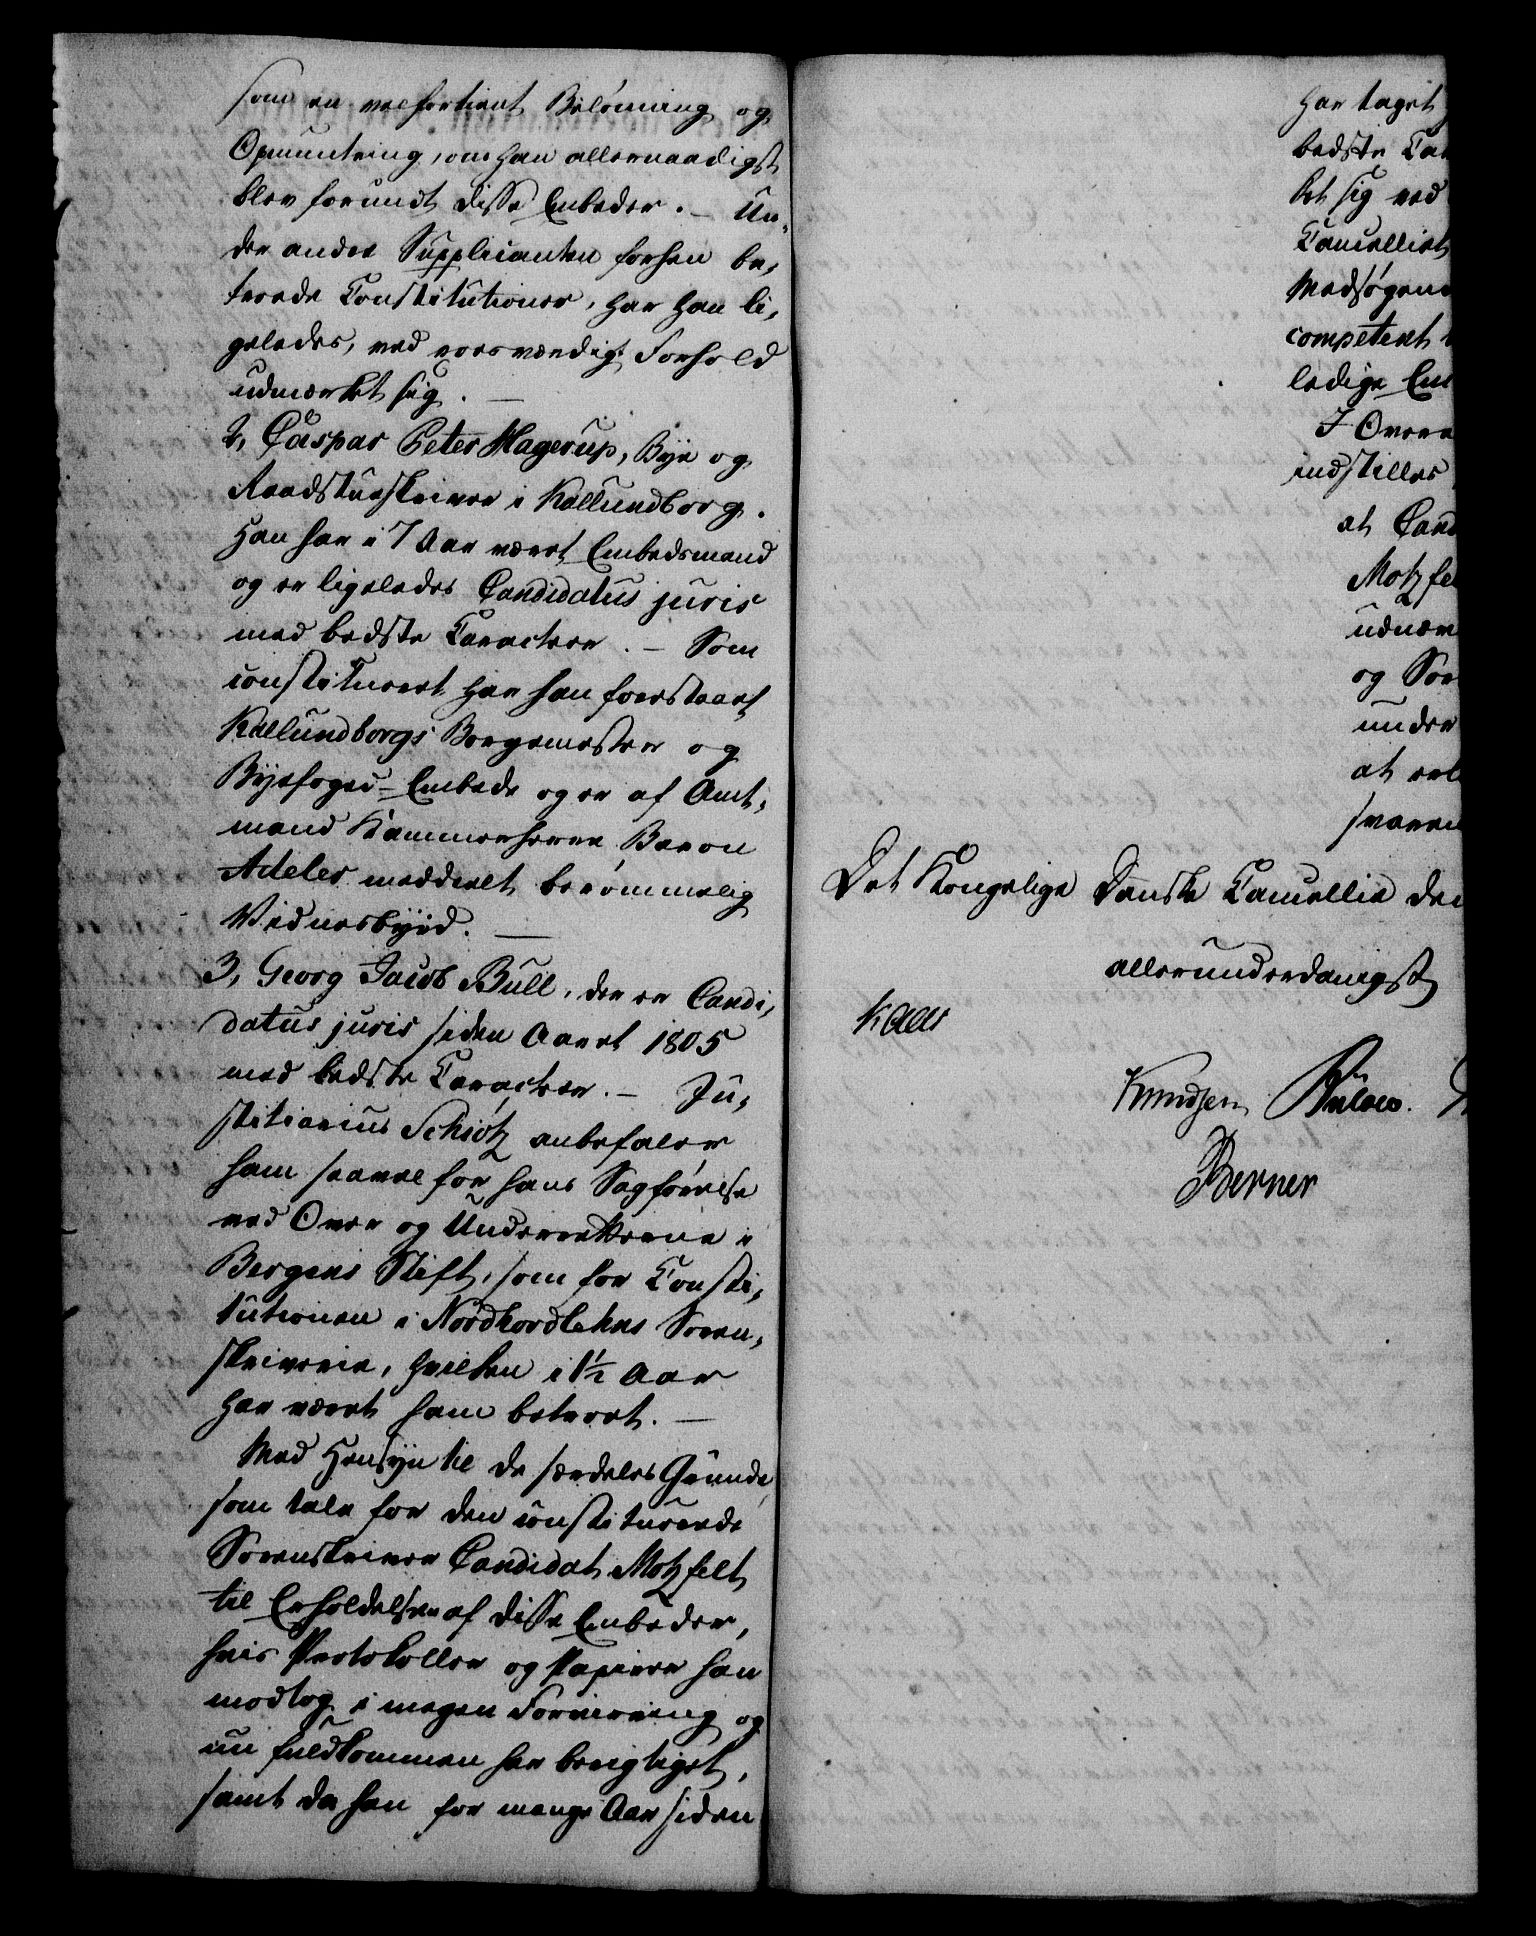 som en velfortient Belønning og
Opmuntring, om han allernaadigst
blev forundt disse Embeder. – Un-
der andre Supplicanten forhen be-
troede Constitutioner, har han li-
geledes, ved roesværdigt Forhold
udmærket sig. —
2, Caspar Peter Hagerup, Bye og
Raadstueskriver i Kallundborg.
Han har i 7 Aar været Embedsmand
og er ligeledes Candidatus juris
med bedste Caracteer. – Som
constitueret har han forestaaet
Kallundborgs Borgemester og
Byefoged-Embede og er af Amt-
mand Kammerherre Baron
Adeler meddeelt berømmelig
Vidnesbyrd. —
3, Georg Jacob Bull, der er Candi-
datus juris siden Aaret 1805
med bedste Caracteer. – Ju-
stitiarius Schiøtz anbefaler
ham saavel for hans Sagførelse
ved Over og Underretterne i
Bergens Stift, som for Consti-
tutionen i Nordhordlehns Soren-
skriverie, hvilken i 1½ Aar
har været ham betroet. —
Med Hensyn til de særdeles Grunde
som tale for den constituerede
Sorenskriver Candidat Motzfelt
til Erholdelsen af disse Embeder,
hvis Protokoller og Papirer han
modtog i megen Forvirring og
nu fuldkommen har berigtiget,
samt da han for mange Aar siden
har taget
bedste
ket sig ved
Cancelliet
Medsøgen
competent
ledige Em
I Over
indstilles
at Cand
Motzfe
udnæv
og Sor
under
at
svaren
Det Kongelige Danske Cancellie den
allerunderdanigst
Kaas
Knudsen Bülow.
Berner